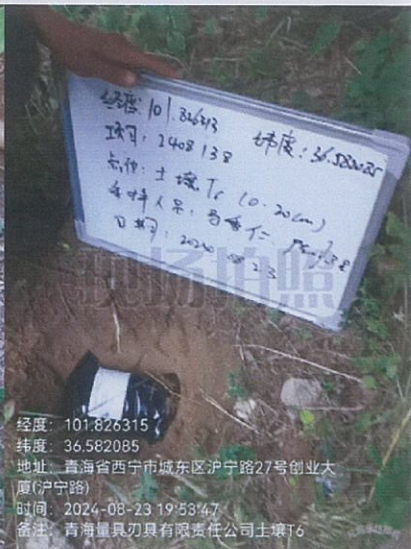 经度:101.826313 纬度:36.582085
项目:2408138
点位:土壤T6(0-20cm)
采样人员:
日期:2024.08.23
现场拍照
经度:101.826315
纬度:36.582085
地址:青海省西宁市城东区沪宁路27号创业大
厦(沪宁路)
时间:2024-08-23 19:53:47
备注:青海量具刃具有限责任公司土壤T6